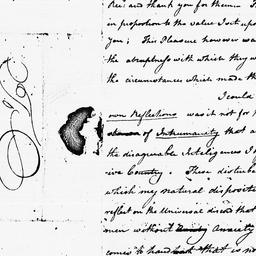 Rec'd and thank you for them.
in proportion to the value I set upon
you; This Pleasure however was
the abruptness with which they w
the circumstances which made th
I could
own Reflections was it not for
of Inhumanity that a
the disagreeable Inteligences I
ive Country. These disturbe
which my natural disposit
reflect on the Universal discord that
men without Anxiety
comes to that is no